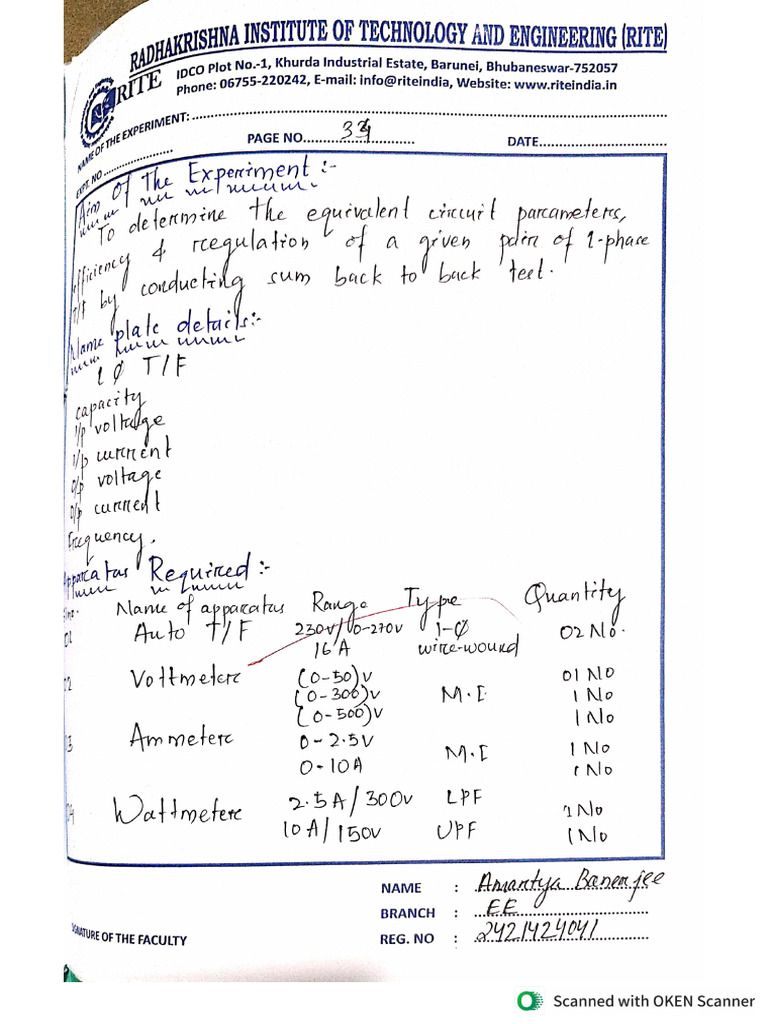 RADHAKRISHNA INSTITUTE OF TECHNOLOGY AND ENGINEERING (RITE)
RITE
IDCO Plot No.-1, Khurda Industrial Estate, Barunei, Bhubaneswar-752057
Phone: 06755-220242, E-mail: info@riteindia, Website: www.riteindia.in
NAME OF THE EXPERIMENT:
EXPT. NO PAGE NO. DATE
Aim Of The Experiment :-
To determine the equivalent circuit parcameters,
efficiency & rcegulation of a given pair of 1-phase
T/f by conducting sum back to back test.
Name plate details:-
1 ϕ T/F
capacity
I/p voltage
I/p current
O/p voltage
O/p current
Frcequency.
Apparcatus Required :-
Name of apparcatus Range Type Quantity
01 Auto T/F 230v/0-270v 1-ϕ 02 No.
16 A wirce-wound
02 Voltmeterc (0-50)v 01 No
(0-300)v M.I 1 No
(0-500)v 1 No
03 Ammeterc 0-2.5V 1 No
0-10A M.I 1 No
04 Wattmeterc 2.5A/300v LPF 1 No
10A/150v UPF 1 No
NAME : Amartya Banerjee
BRANCH : EE
SIGNATURE OF THE FACULTY REG. NO : 2421424041
Scanned with OKEN Scanner